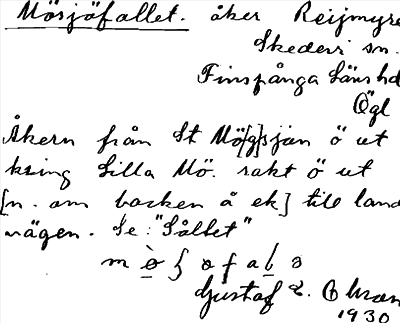 Mörsjöfallet. åker Reijmyre
Skedevi sn.
Finspånga läns hd
Ögl
Åkern från St Mö[g]sjön ö ut
kring Lilla Mö. rakt ö ut
[n. om backen å ek] till land
vägen. Se: "Fållet"
Gustaf
1930